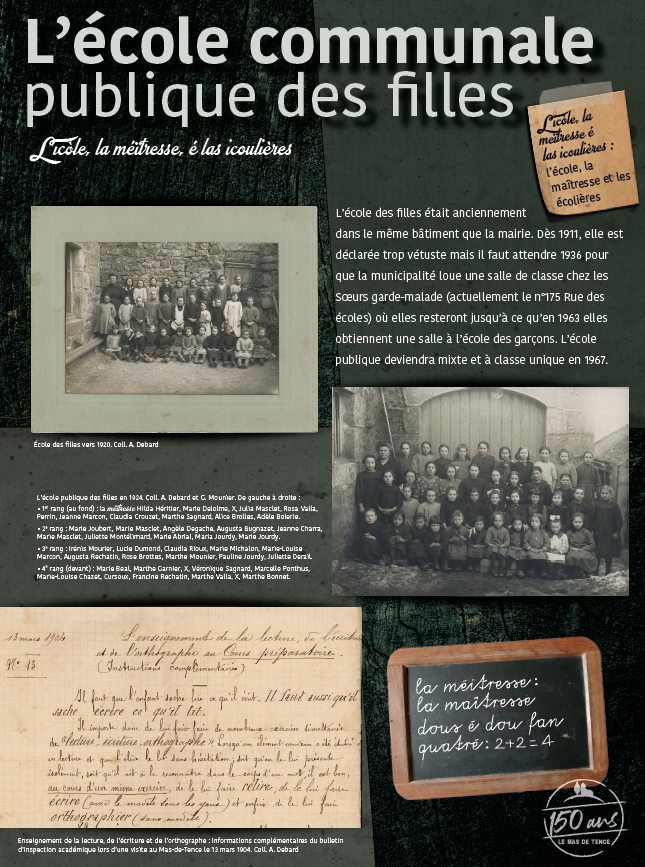 L'école communale
publique des filles
L'icòle, la méïtresse, é las icoulières
L'icòle, la
méïtresse é
las icoulières :
l'école, la
maîtresse et les
écolières
L'école des filles était anciennement
dans le même bâtiment que la mairie. Dès 1911, elle est
déclarée trop vétuste mais il faut attendre 1936 pour
que la municipalité loue une salle de classe chez les
Sœurs garde-malade (actuellement le n°175 Rue des
écoles) où elles resteront jusqu'à ce qu'en 1963 elles
obtiennent une salle à l'école des garçons. L'école
publique deviendra mixte et à classe unique en 1967.
École des filles vers 1920. Coll. A. Debard
L'école publique des filles en 1924. Coll. A. Debard et G. Mounier. De gauche à droite :
• 1er rang (au fond) : la méïtresse Hilda Héritier, Marie Delolme, X, Julia Masclet, Rosa Valla,
Perrin, Jeanne Marcon, Claudia Crouzet, Marthe Sagnard, Alice Brolles, Adèle Bolerie.
• 2e rang : Marie Joubert, Marie Masclet, Angèle Degache, Augusta Bugnazet, Jeanne Charra,
Marie Masclet, Juliette Montélimard, Marie Abrial, Maria Jourdy, Marie Jourdy.
• 3e rang : Irénis Mourier, Lucie Dumond, Claudia Rioux, Marie Michalon, Marie-Louise
Marcon, Augusta Rechatin, Rose Brottes, Marthe Mounier, Pauline Jourdy, Juliette Deraïl.
• 4e rang (devant) : Marie Beal, Marthe Garnier, X, Véronique Sagnard, Marcelle Ponthus,
Marie-Louise Chazet, Cursoux, Francine Rechatin, Marthe Valla, X, Marthe Bonnet.
13 mars 1904
L'enseignement de la lecture, de l'écriture
et de l'orthographe au Cours préparatoire.
N° 13
(Instructions complémentaires)
Il faut que l'enfant sache lire ce qu'il écrit. Il faut aussi qu'il
sache écrire ce qu'il lit.
Il importe donc de lui faire faire de nombreux exercices simultanés
de "lecture-écriture-orthographe" Lorsqu'un élément nouveau a été étudié
en lecture et que l'élève le lit sans hésitation, soit qu'on le lui présente
isolément, soit qu'il ait à le reconnaître dans le corps d'un mot, il est bon,
au cours d'un même exercice, de le lui faire relire, de le lui faire
écrire (avec le modèle sous les yeux) et enfin de le lui faire
orthographier (sans le modèle).
Enseignement de la lecture, de l'écriture et de l'orthographe : informations complémentaires du bulletin
d'inspection académique lors d'une visite au Mas-de-Tence le 13 mars 1904. Coll. A. Debard
la méïtresse :
la maîtresse
dous é dou fan
quatré : 2+2 = 4
150 ans
LE MAS DE TENCE